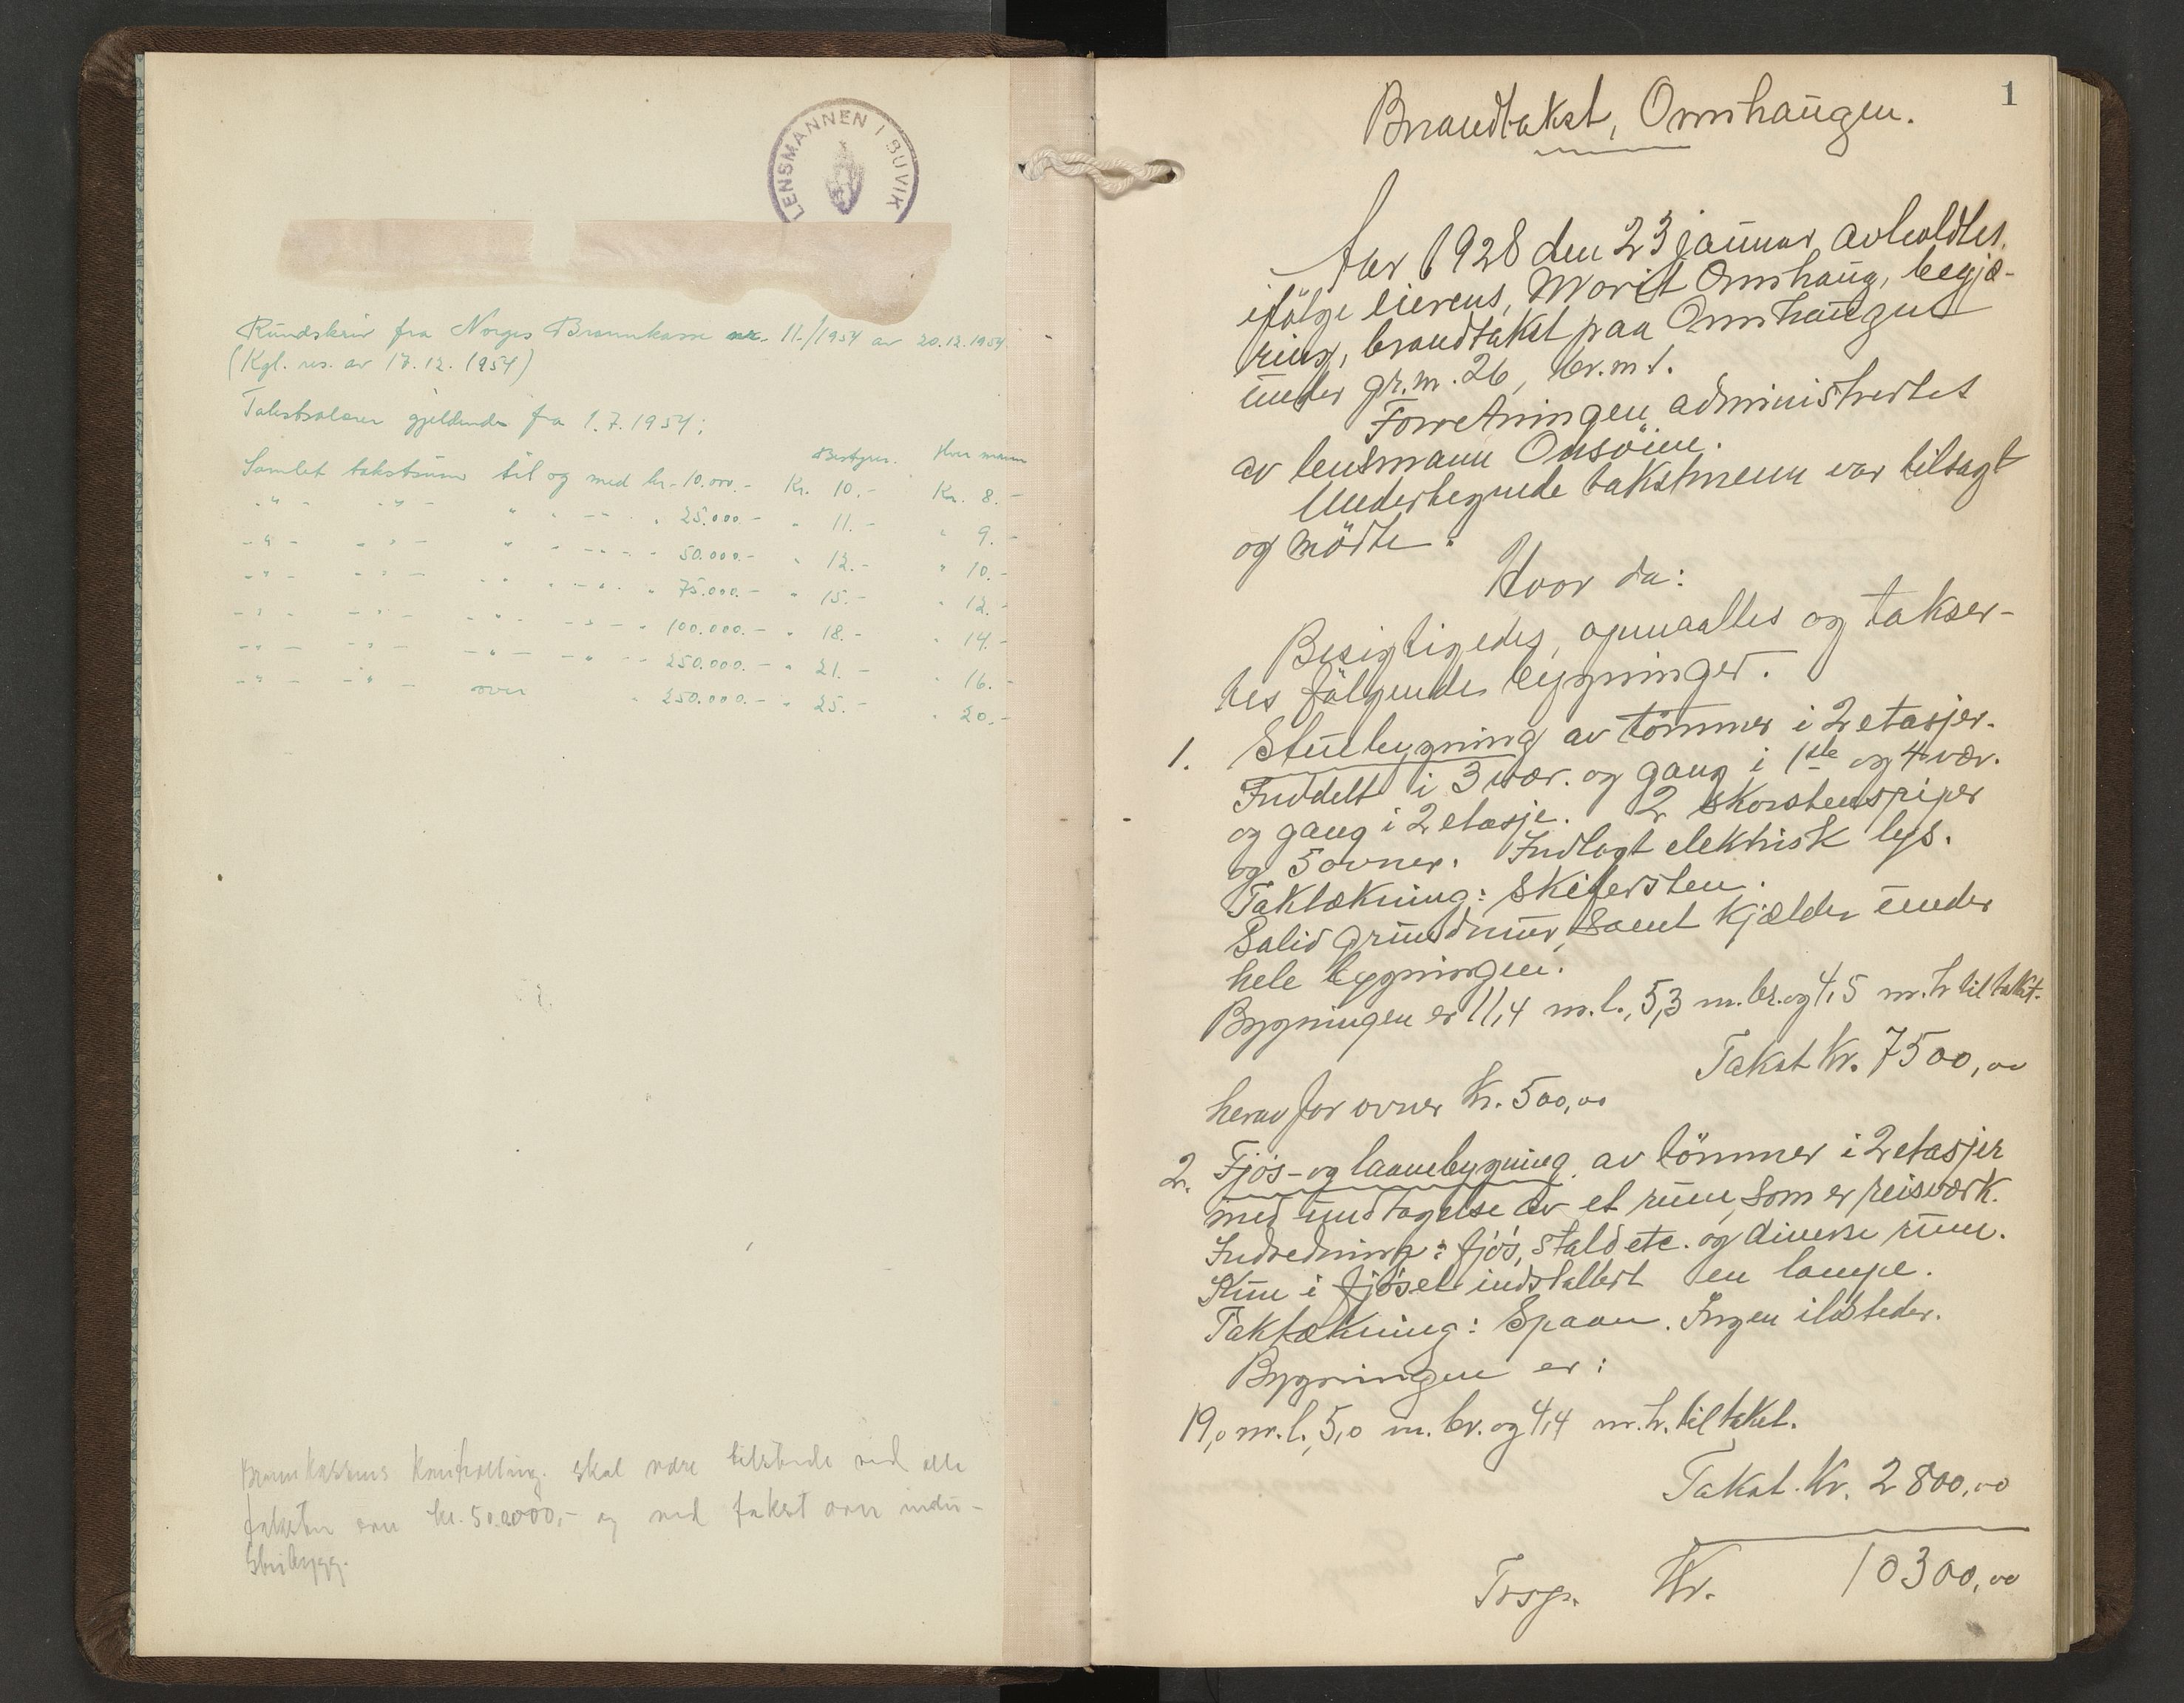 LENSMANNEN I BUVIK
Rundskriv fra Norges Brannkasse nr. 11./1954 av 20.12.1954
(Kgl. res. av 17.12.1954)
Takstsalærer gjeldende fra 1.7.1954;
Bestyrer. Hver mann
Samlet takstsum til og med kr. 10.000.- Kr. 10.- Kr. 8.-
-"- -"- " - -- - " 25.000.- " 11.- " 9.-
-"- -"- " - -- - " 50.000.- " 12.- " 10.-
-"- -"- -"- -"- " 75.000.- " 15.- " 12.-
-"- -"- -"- -"- " 100.000.- " 18.- " 14.-
-"- -"- -"- -"- -- 250.000.- " 21.- " 16.-
-"- -"- over " 250.000.- " 25.- " 20.-
Brannkassens kontrolling. skal være tilstede ved alle
takster over kr. 50.0000,- og ved takst over indu-
stribygg.
1
Brandtakst, Omshaugen.
Aar 1928 den 23 januar avholdtes,
ifölge eierens, Marit Omshaug, begjæ-
ring, brandtakst paa Omshaugen
under gr.n. 26, br.n 1.
Forretningen administrertes
av lensmann Onsöien.
Undertegnede takstmenn var tilsagt
og mödte.
Hvor da:
Besigtigedes, opmaaltes og takser-
tes fölgende bygninger.
1. Stuebygning av tömmer i 2 etasjer.
Inddelt i 3 vær. og gang i 1ste og 4 vær.
og gang i 2 etasje. 2 skorstenspiper
og 5 ovner. Indlagt elektrisk lys.
Taktækning: Skifersten.
Solid grundmur, samt kjælder under
hele bygningen.
Bygningen er 11,4 m. l., 5,3 m. br. og 4,5 m. h til taket.
Takst Kr. 7500,00
herav for ovner Kr. 500,00
2. Fjös- og laanebygning av tömmer i 2 etasjer
med undtagelse av et rum, som er reisværk.
Indredning: fjös, stald etc. og diverse rum.
Kun i fjöset indstallert en lampe.
Taktækning: Spaan. Ingen ildsteder.
Bygningen er:
19,0 m. l., 5,0 m. br. og 4,4 m. h. til taket.
Takst. Kr. 2800,00
Trsp. Kr. 10300,00